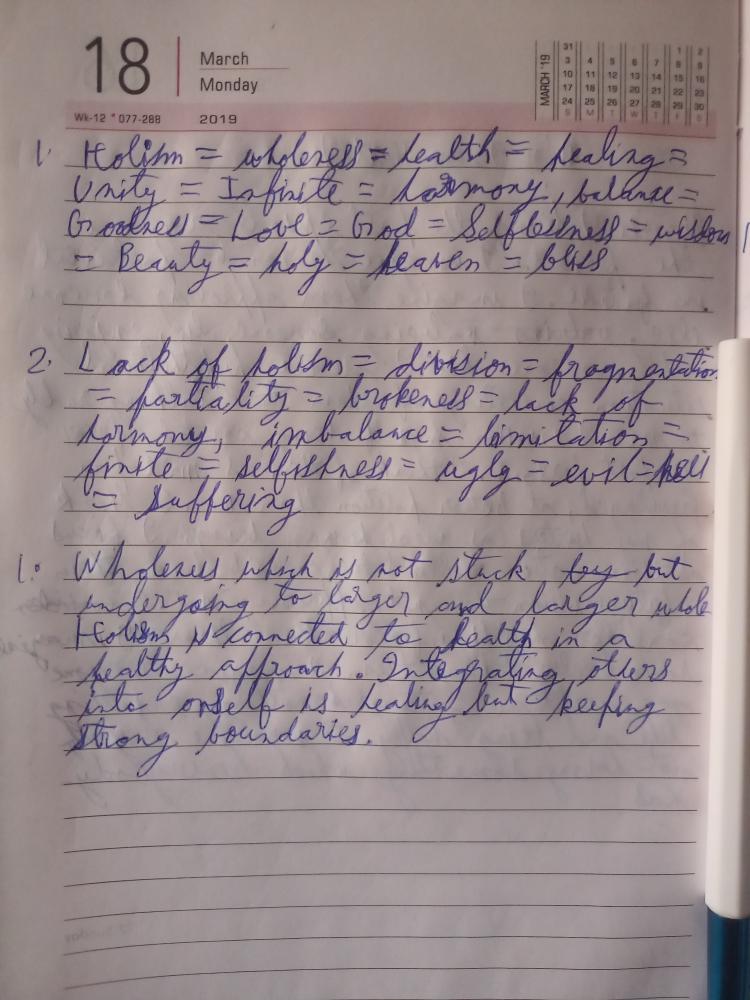 18 March
Monday
Wk-12 * 077-288 2019
MARCH '19
31 3 10 17 24 S
4 11 18 25 M
5 12 19 26 T
6 13 20 27 W
7 14 21 28 T
1 8 15 22 29 F
2 9 16 23 30 S
1. Holism = wholeness = health = healing =
Unity = Infinite = harmony, balance =
Goodness = Love = God = Selflessness = wisdom
= Beauty = holy = heaven = bliss
2. Lack of holism = division = fragmentation
= partiality = brokeness = lack of
harmony, imbalance = limitation =
finite = selfishness = ugly = evil = hell
= suffering
1. Wholeness which is not stuck by but
undergoing to larger and larger whole
Holism is connected to health in a
healthy approach. Integrating others
into onself is healing but keeping
strong boundaries.